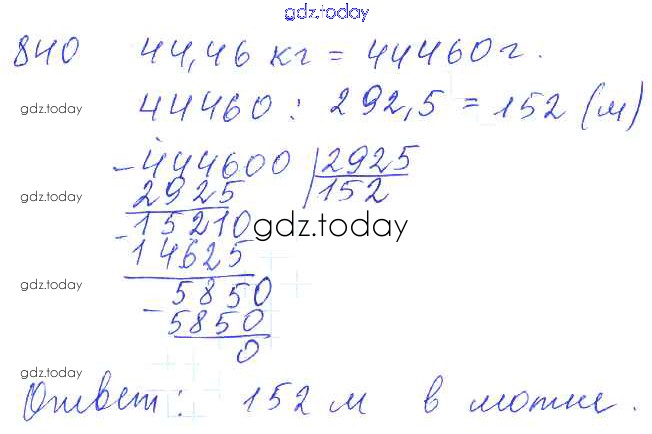 gdz.today
840 44,46 кг = 44460 г.
gdz.today
44460 : 292,5 = 152 (м)
- 444600 | 2925
gdz.today
2925 | 152
- 15210
gdz.today
14625
gdz.today
5850
- 5850
0
gdz.today
Ответ: 152 м в мотке.